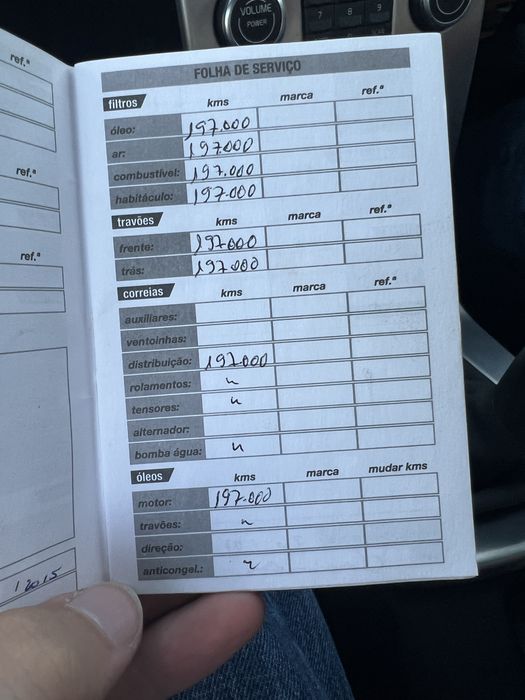 VOLUME
POWER
7 8 9
ref.ª
ref.ª
ref.ª
12015
FOLHA DE SERVIÇO
filtros kms marca ref.ª
óleo: 197.000
ar: 197.000
combustível: 197.000
habitáculo: 197.000
travões kms marca ref.ª
frente: 197.000
trás: 197.000
correias kms marca ref.ª
auxiliares:
ventoinhas:
distribuição: 197.000
rolamentos: "
tensores: "
alternador:
bomba água: "
óleos kms marca mudar kms
motor: 197.000
travões: "
direção:
anticongel.: "